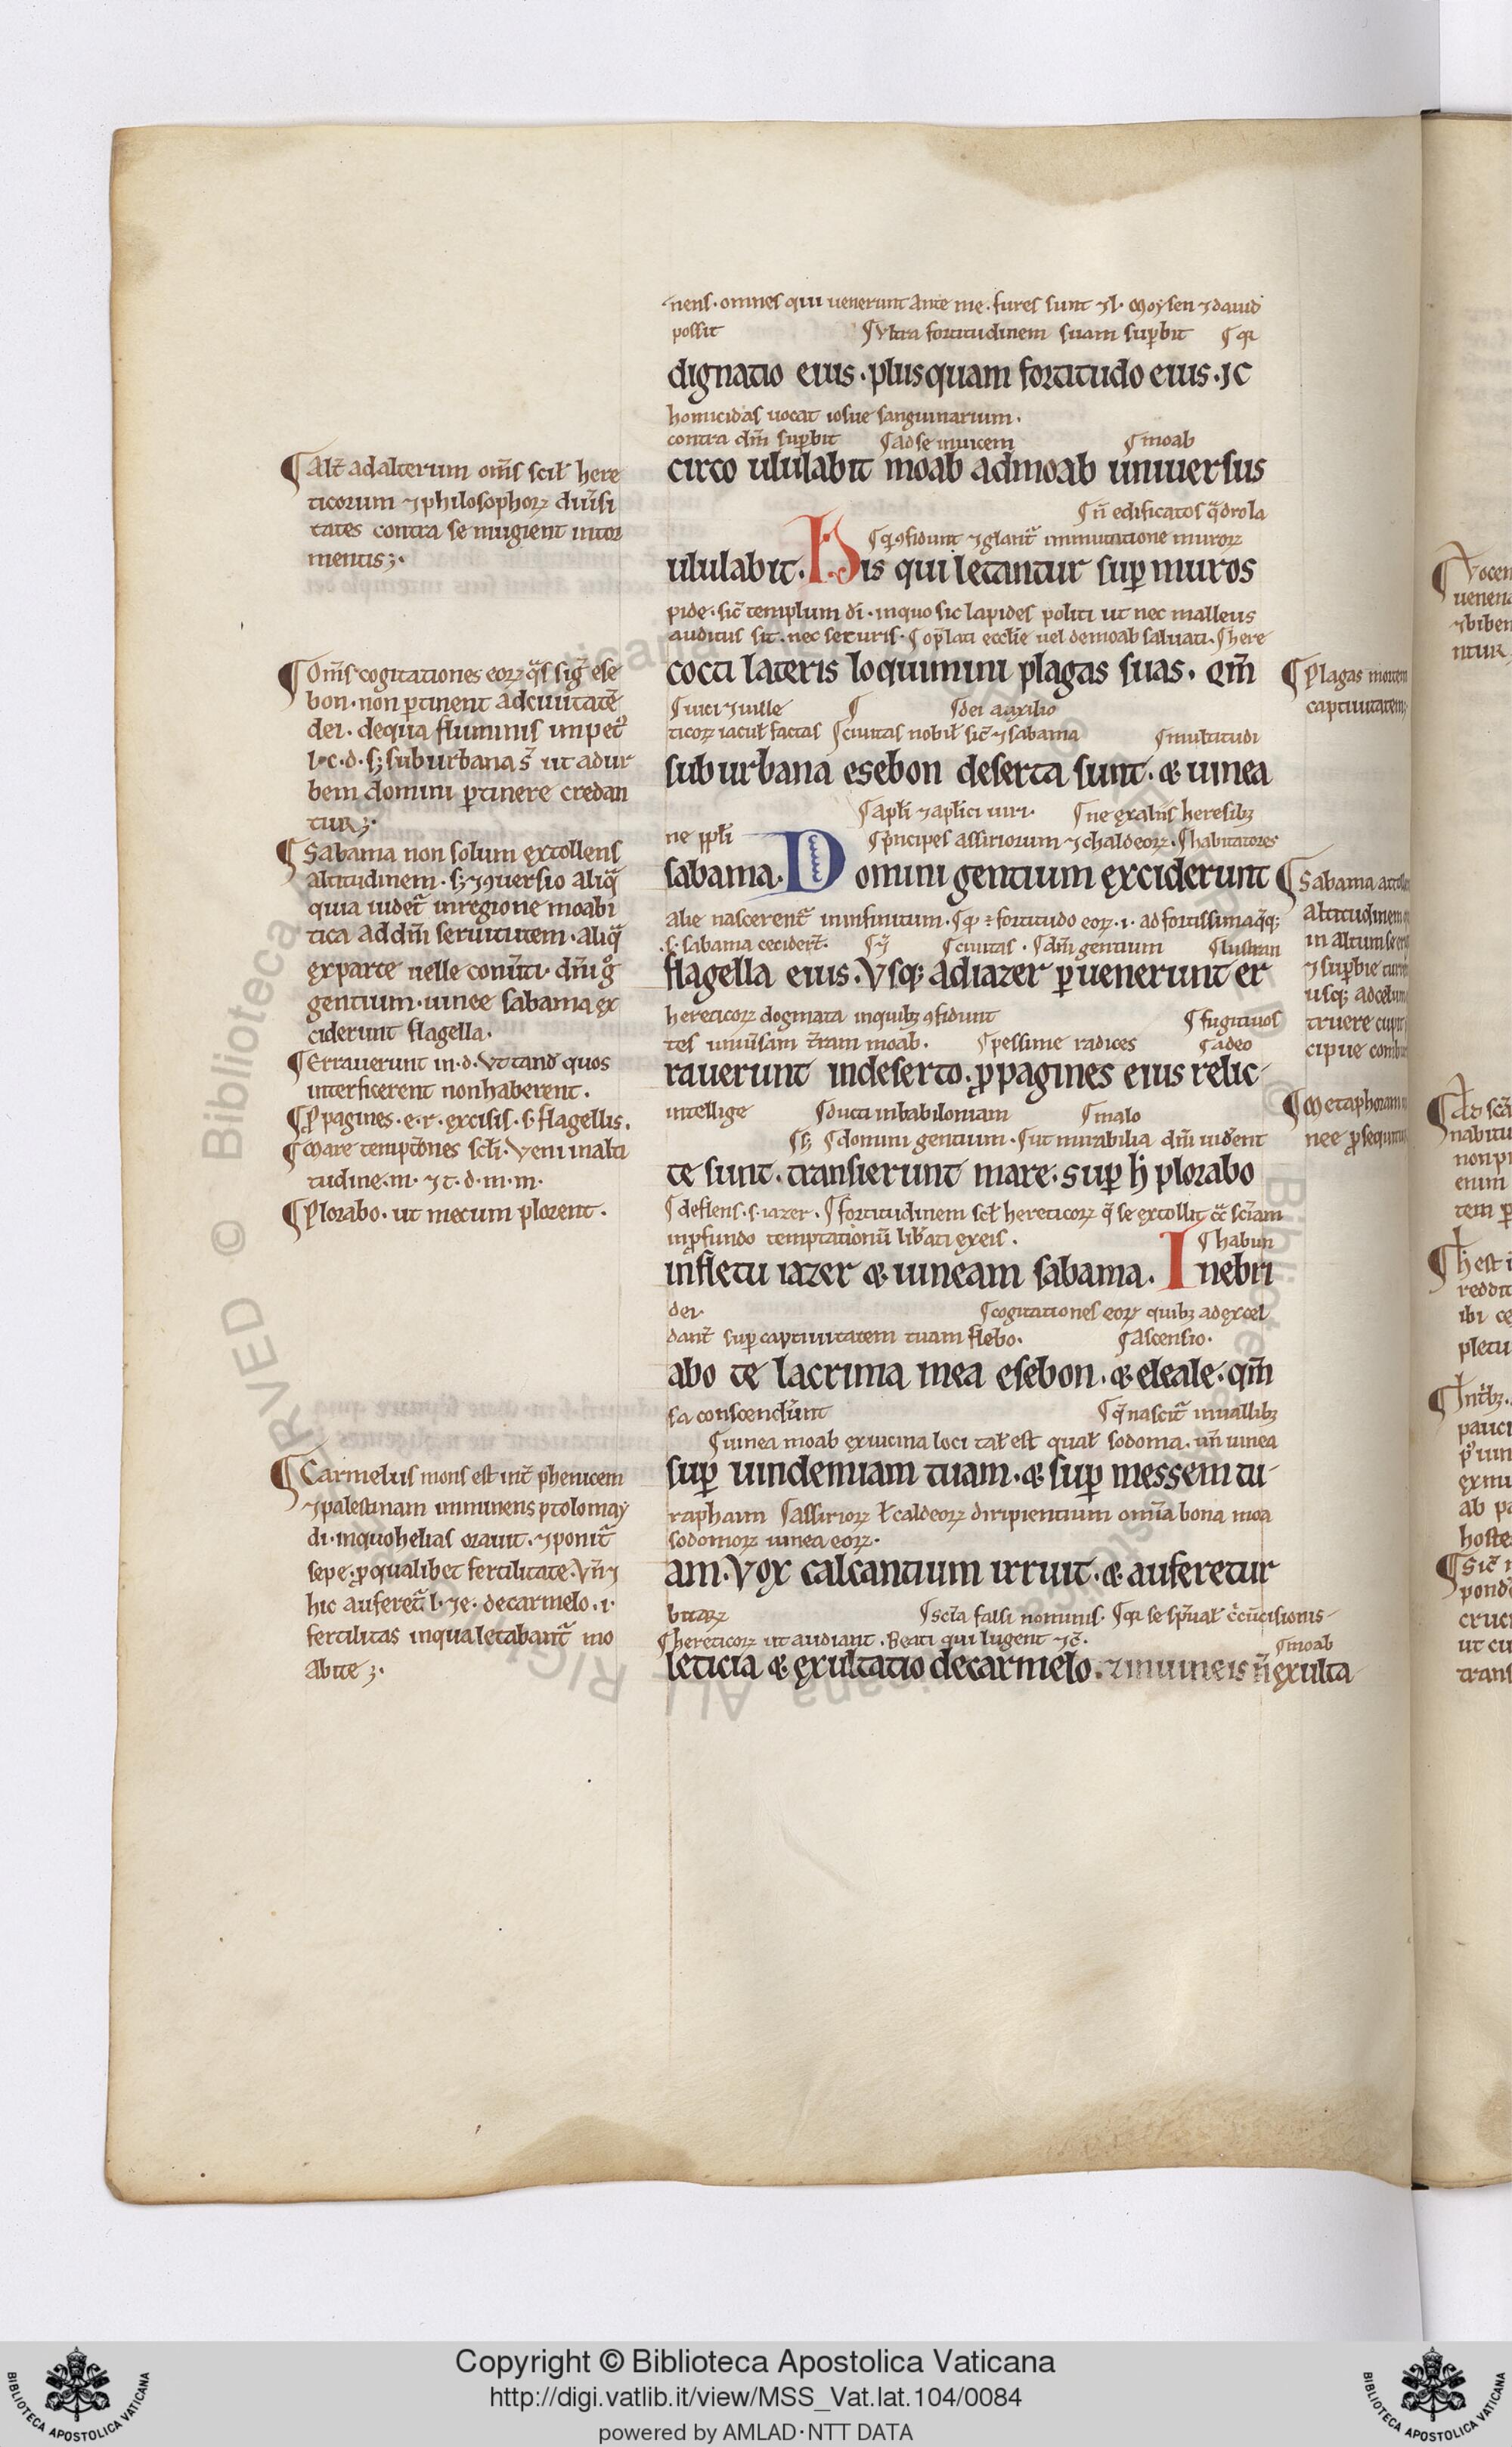 nens. omnes qui uenerunt ante me. fures sunt ⁊ł. moẏsen ⁊ dauid
possit ¶ Vltra fortitudinem suam suꝑbit ¶ qꝛ
dignatio eius. plusquam fortitudo eius. JC
homicidas uocat iosue sanguinarium.
contra dm̄ suꝑbit ¶ ad se inuicem ¶ moab
circo ululabit moab admoab uniuersus
¶ n̄ edificatos q̄drola
¶ ꝗꝯfidunt ⁊ glant᷑ inmutatione muroꝝ
ululabit. His qui letantur suꝑ muros
pide. sic̄ templum dī. inquo sic lapides politi ut nec malleus
auditus sit. nec securis. ¶ op̄lati eccl̄ie uel demoab saluati. ¶ here
cocti lateris loquimini plagas suas. Qm̄
¶ uici ⁊ uille ¶ ¶ dei auxilio
ticoꝝ iacuł factas ¶ ciuitas nobił sic̄ ⁊ sabama ¶ multitudi
suburbana esebon deserta sunt. & uinea
¶ apłi ⁊ apłici uiri. ¶ ne ęxalns̄ heresibꝫ
ne ppłi ¶ pͥncipes assiriorum ⁊ chaldeoꝝ. ¶ habitatores
sabama. Domini gentium ęxciderunt
alie nascerent᷑ ininfinitum. ¶ qꝛ ⁊ fortitudo eoꝝ. i. ad fortissima q̄qꝫ
.s. sabama ceciderͭ. ¶ ciuitas. ¶ dm̄ gentium ¶ lustran
flagella eius. Vsqꝫ adiazer ꝑuenerunt er
hereticoꝝ dogmata inquibꝫ ꝯfidunt ¶ fugitiuos
tes uniu̅sam t̅ram moab. ¶ pessime radices ¶ adeo
rauerunt indeserto. ꝓpagines eius relic-
intellige ¶ ducti inbabiloniam ¶ malo
¶ sꝫ ¶ domini gentium. ¶ ut mirabilia dm̄ uid̅ent
te sunt. transierunt mare. suꝑ ħ plorabo
¶ deflens. s. iazer. ¶ fortitudinem scł hereticoꝝ q̄ se extollit cͣ sci̅am
inꝓfundo temptationū lib̅ati ęxeis. ¶ habun
infletu iazer & uineam sabama. Inebri
dei. ¶ cogitationes eoꝝ quibꝫ adęxcel
dant᷑ suꝑ captiuitatem tuam flebo. ¶ ascensio.
abo te lacrima mea esebon. & eleale. qm̄
sa conscend̅unt ¶ q̄ nascit᷑ inuallibꝫ
¶ uinea moab ęxuicina loci tał est quał sodoma. un̄ uinea
suꝑ uindemiam tuam. & suꝑ messem tu-
raphaim ¶ assirioꝝ ł caldeoꝝ diripientium om̅ia bona moa
sodomoꝝ uinea eoꝝ.
am. Vox calcantium irruit. & auferetur
bitaꝝ ¶ sci̅a falsi nominis. ¶ qꝛ se sp̄uał c̅cu̅cisionis-
¶ hereticoꝝ ut audiant. Beati qui lugent ⁊c̄. ¶ moab
leticia & ęxultatio decarmelo. ⁊inuineis n̄ ęxulta-
¶ Alt̅ adalterum om̅s scił here
ticorum ⁊ philosophoꝝ diu̅si
tates contra se mugient intor
mentis ꝫ.
¶ Om̅s cogitationes eoꝝ q̄s sig᷑ ese
bon. non ꝑtinent adciuitatē
dei. dequa fluminis impetꝰ
l. c. d. sꝫ suburbana s̄ ut adur
bem domini ꝑtinere credan
tur ꝫ.
¶ Sabama non solum ęxtollens
altitudinem. sꝫ ⁊ ꝯuersio aliq̄
quia uidet᷑ inregione moabi
tica addm̄ seruitutem. aliq̄
ęxparte uelle conu̅ti. dn̄i gͦ
gentium. uinee sabama ęx
ciderunt flagella.
¶ Errauerunt in. d. Vt tand̄ quos
interficerent nonhaberent.
¶ Ꝓpagines. e. r. excisis. s. flagellis.
¶ Mare tempt̅ones scłi. Veni inalti
tudinē. m. ⁊ t. d. m. m.
¶ Plorabo. ut mecum plorent.
¶ Carmelus mons est int̅ phenicem
⁊ palestinam imminens ptolomaẏ
di. inquo helias orauit. ⁊ ponit᷑
sepe. ꝓ qualibet fertilitate. Vn̄ ⁊
hic auferet᷑ l. ⁊ e. decarmelo. i.
fertilitas inqua letabant᷑ mo
abite ꝫ.
¶ Plagas
captiuitatem
¶ Sabama
altitudinem
in altum se
⁊ suꝑbie
usqꝫ adcelum
truere
cipue
¶ Metaphoram
nee ꝓsequitur
Copyright © Biblioteca Apostolica Vaticana
http://digi.vatlib.it/view/MSS_Vat.lat.104/0084
powered by AMLAD·NTT DATA
BIBLIOTECA APOSTOLICA VATICANA
BIBLIOTECA APOSTOLICA VATICANA